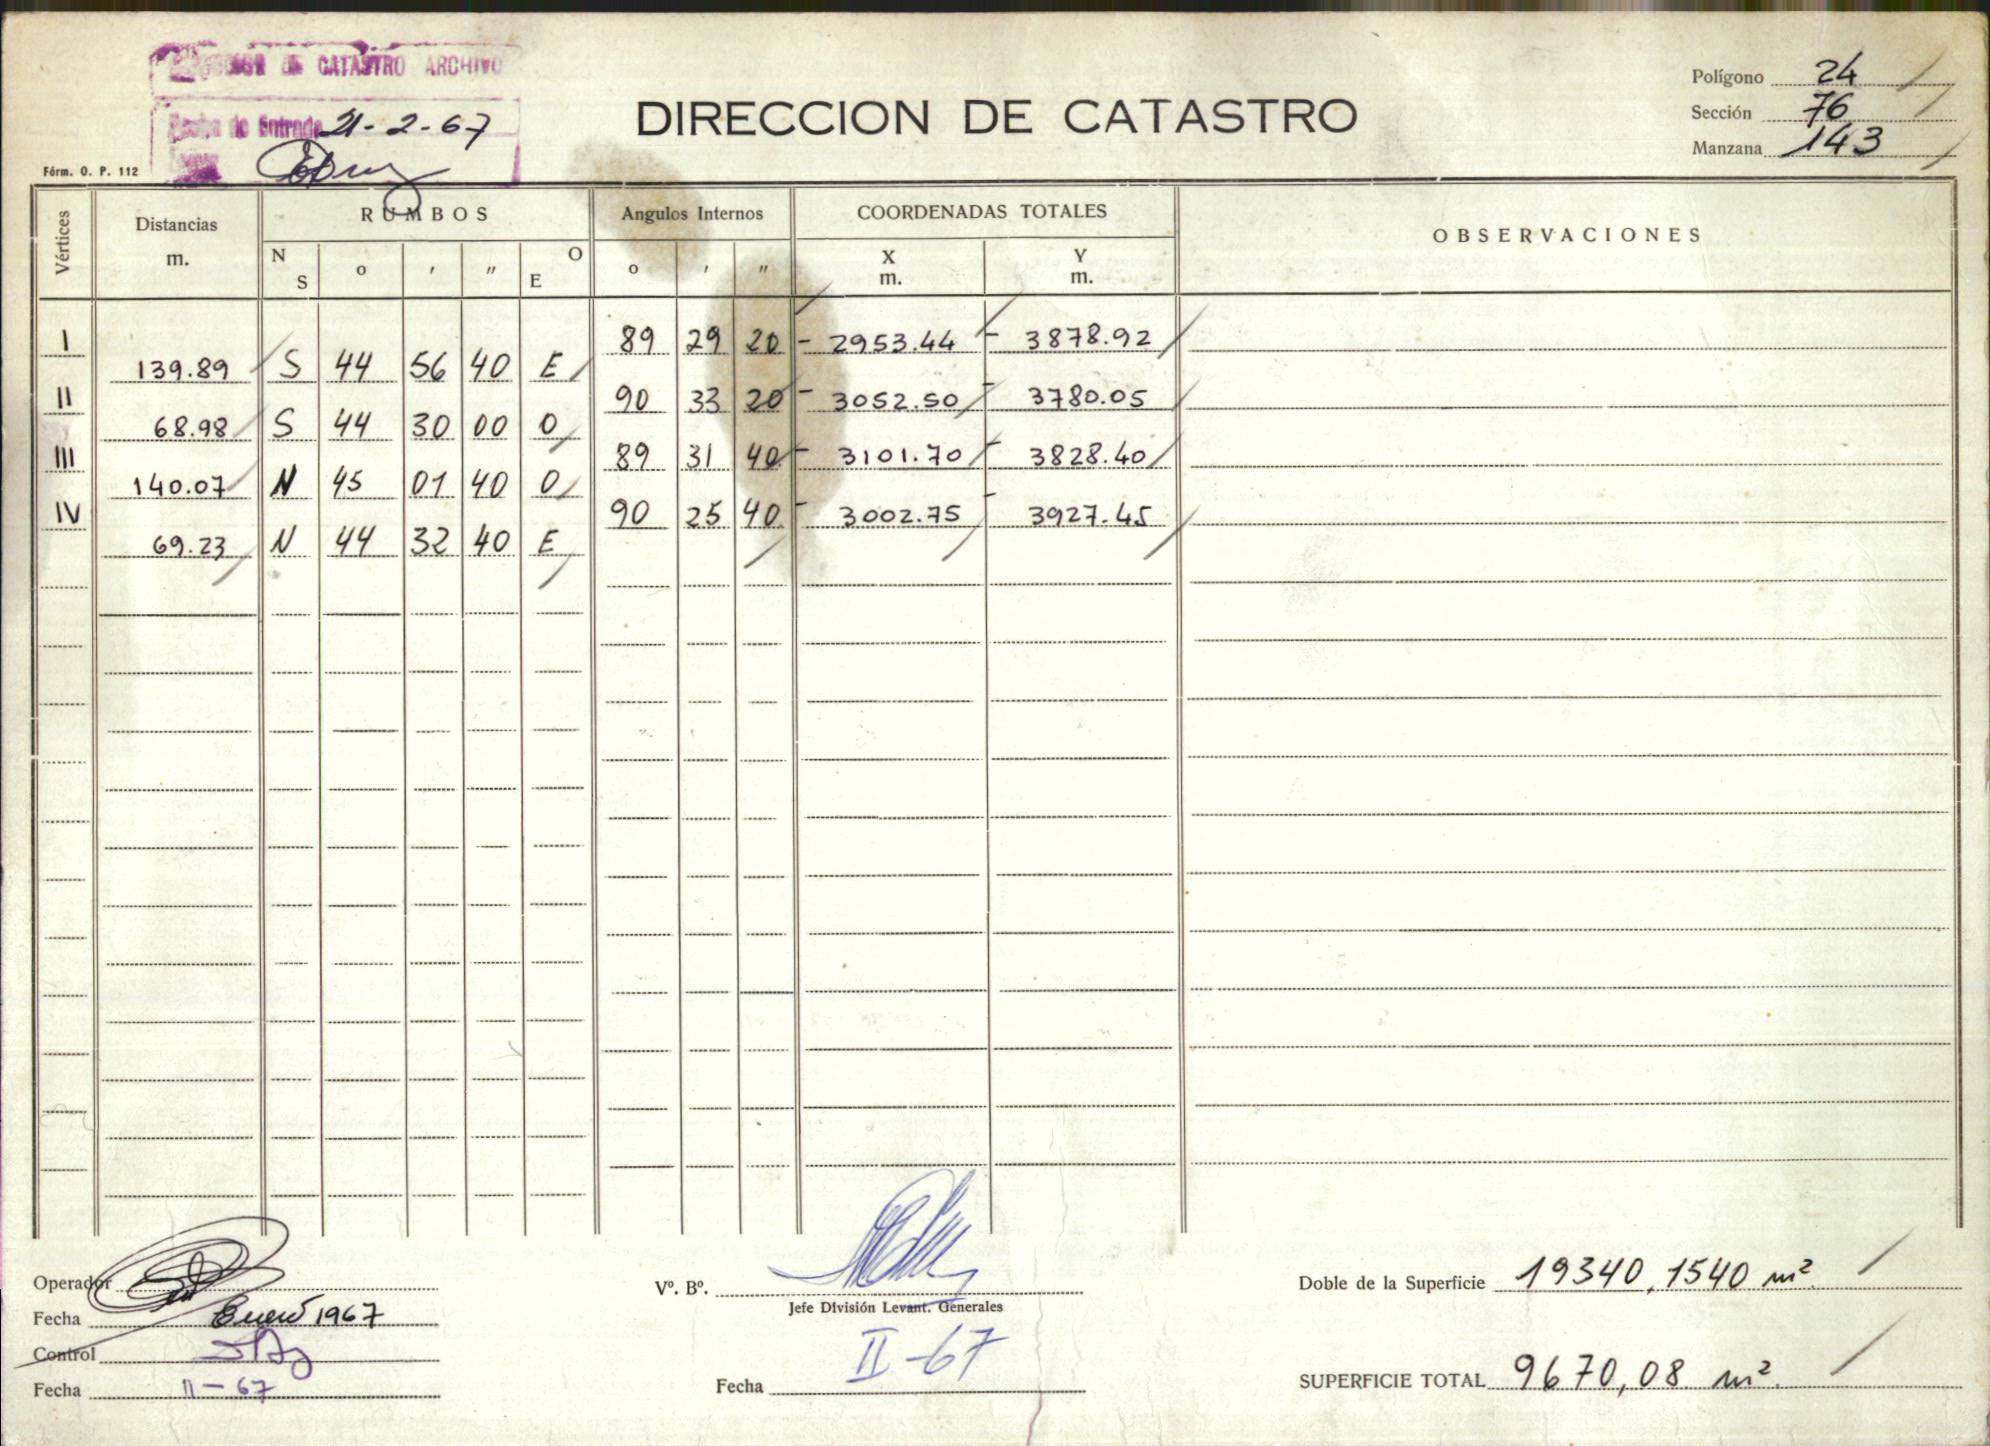 DE CATASTRO ARCHIVO
Fecha de Entrada 21-2-67
Fórm. O. P. 112
DIRECCION DE CATASTRO
Polígono 24
Sección 76
Manzana 143
Vértices Distancias m. RUMBOS Angulos Internos COORDENADAS TOTALES OBSERVACIONES
N S o ′ ″ O E o ′ ″ X m. Y m.
I 89 29 20 - 2953.44 - 3878.92
139.89 S 44 56 40 E
II 90 33 20 - 3052.50 - 3780.05
68.98 S 44 30 00 O
III 89 31 40 - 3101.70 - 3828.40
140.07 N 45 01 40 O
IV 90 25 40 - 3002.75 - 3927.45
69.23 N 44 32 40 E
Operador
Fecha Enero 1967
Control
Fecha II - 67
Vº. Bº.
Jefe División Levant. Generales
Fecha II - 67
Doble de la Superficie 19340,1540 m²
SUPERFICIE TOTAL 9670,08 m².